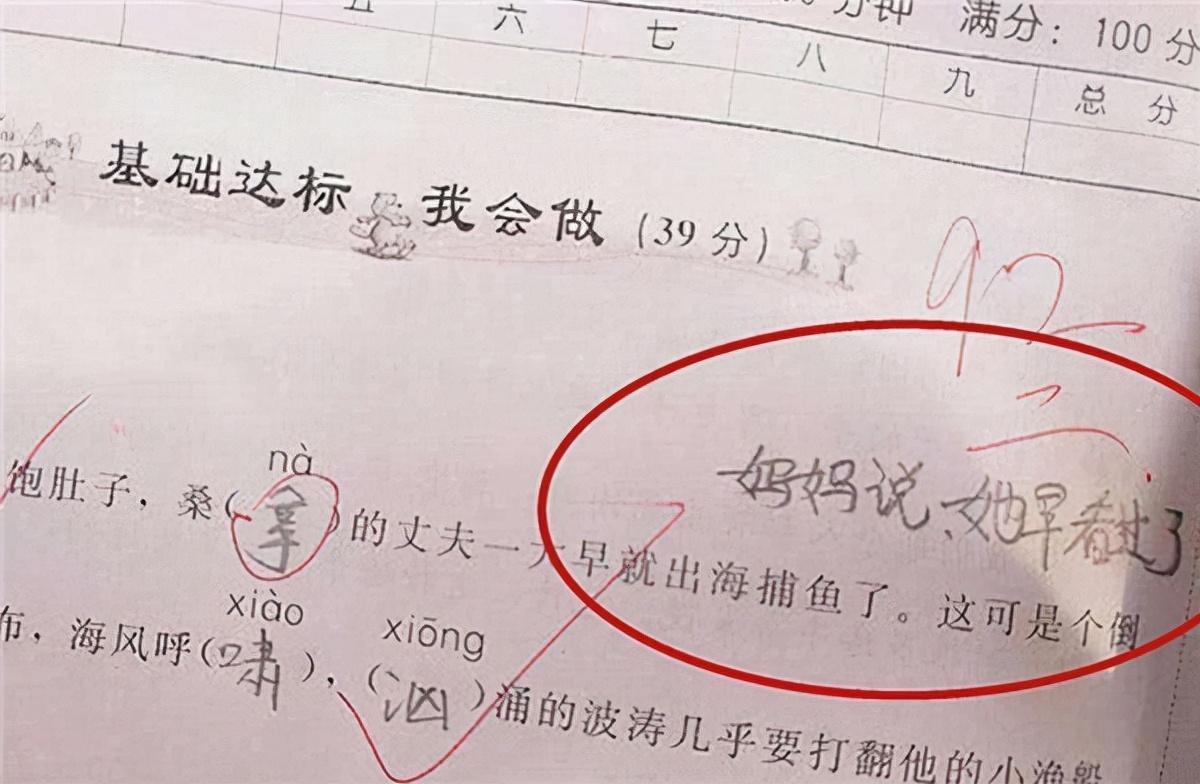 分钟 满分：100分
五 六 七 八 九 总分
基础达标 我会做（39分）
92
妈妈说，她早看过了
nà
饱肚子，桑（拿）的丈夫一大早就出海捕鱼了。这可是个倒
xiào xiōng
布，海风呼（啸），（汹）涌的波涛几乎要打翻他的小渔船